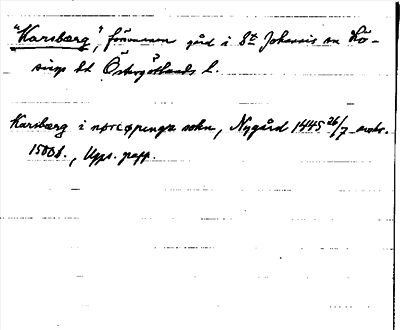 "Karsbærg", försvunnen gård i S:t Johannis sn Lö-
sings hd Östergötlands l.
Karsbærg i norcøpunga sokn, Nygård 1445 26/7 avskr.
1500t., Upps. papp.